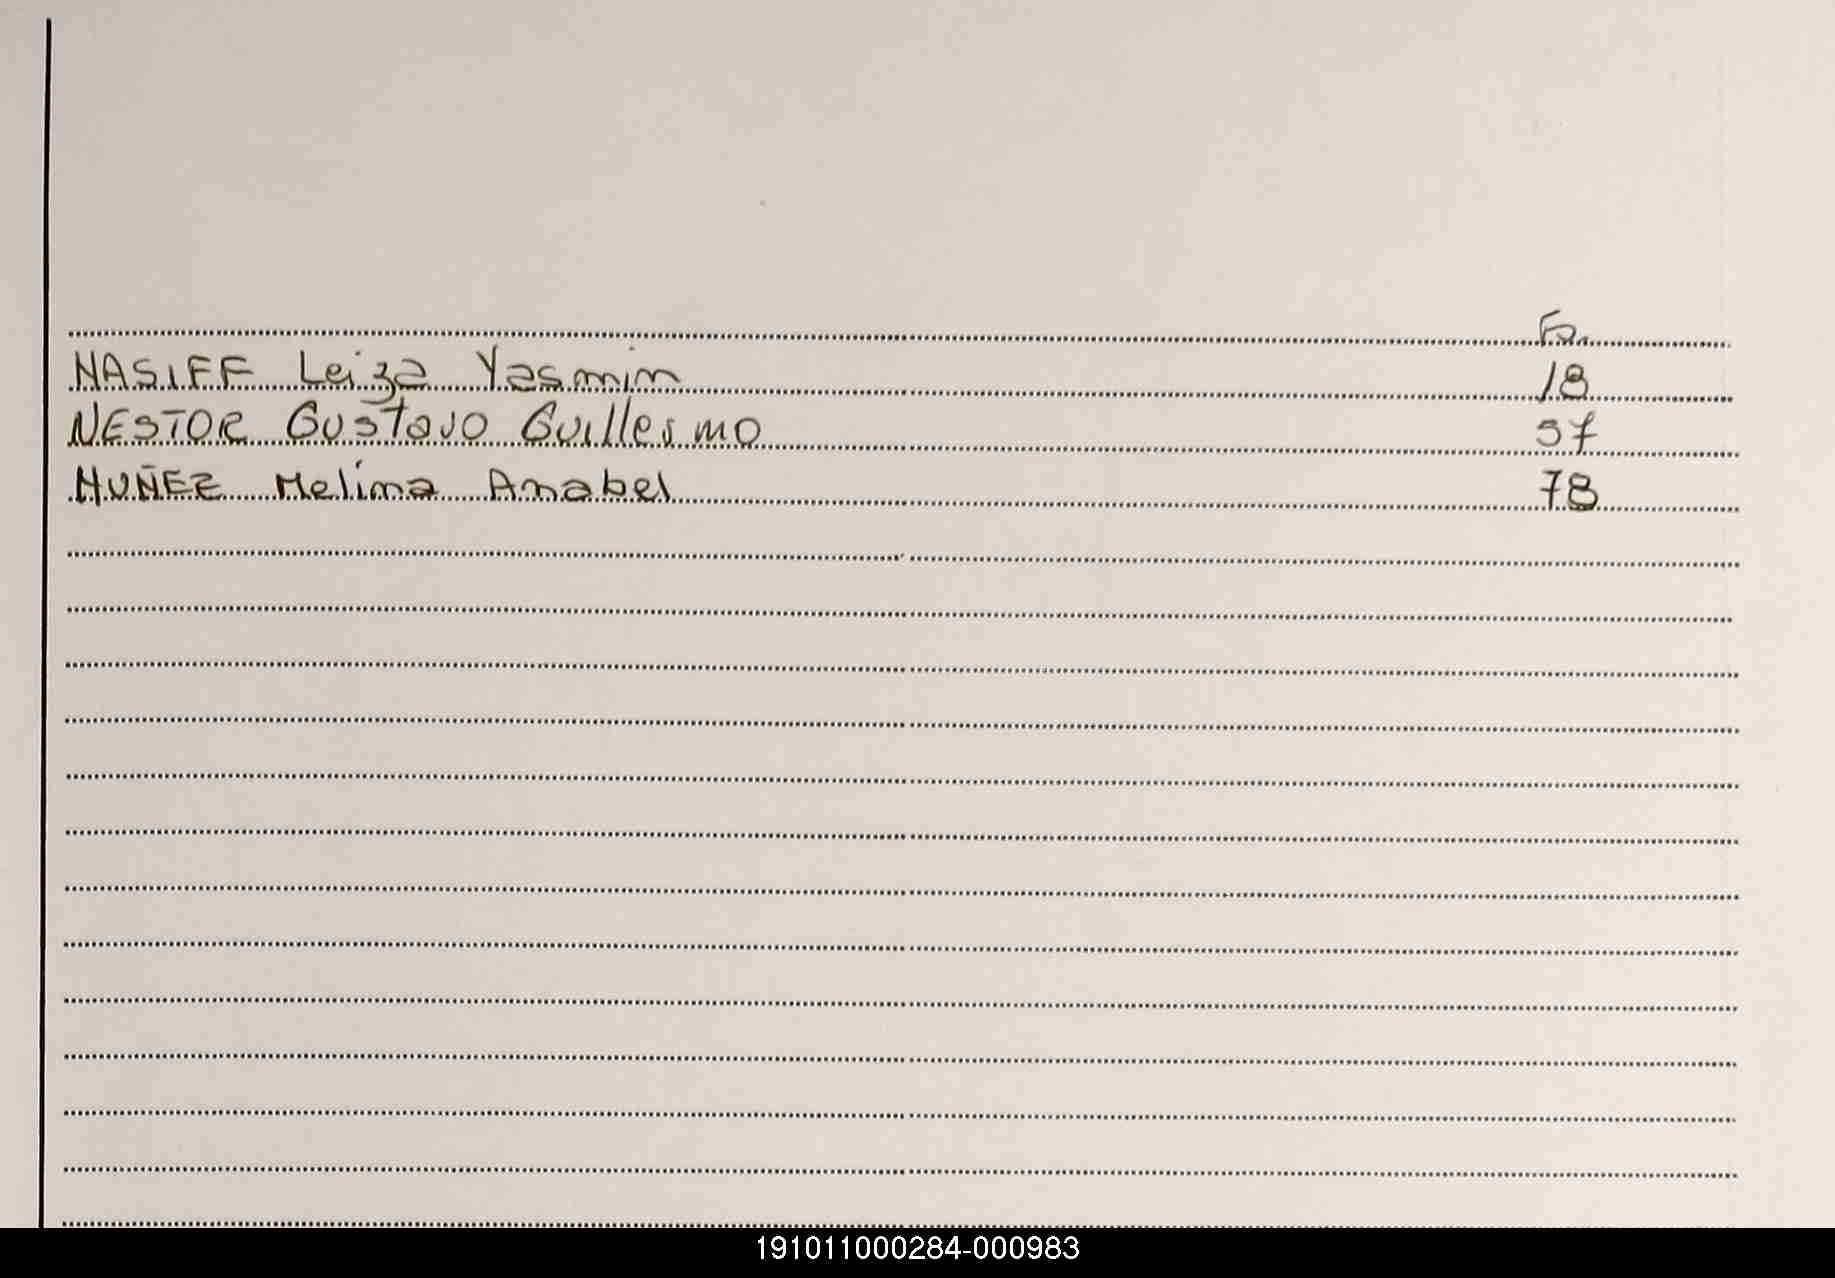 Fo.
NASIFF Leiza Yasmin 18
NESTOR Gustavo Guillermo 57
NUÑEZ Melina Anabel 78
191011000284-000983